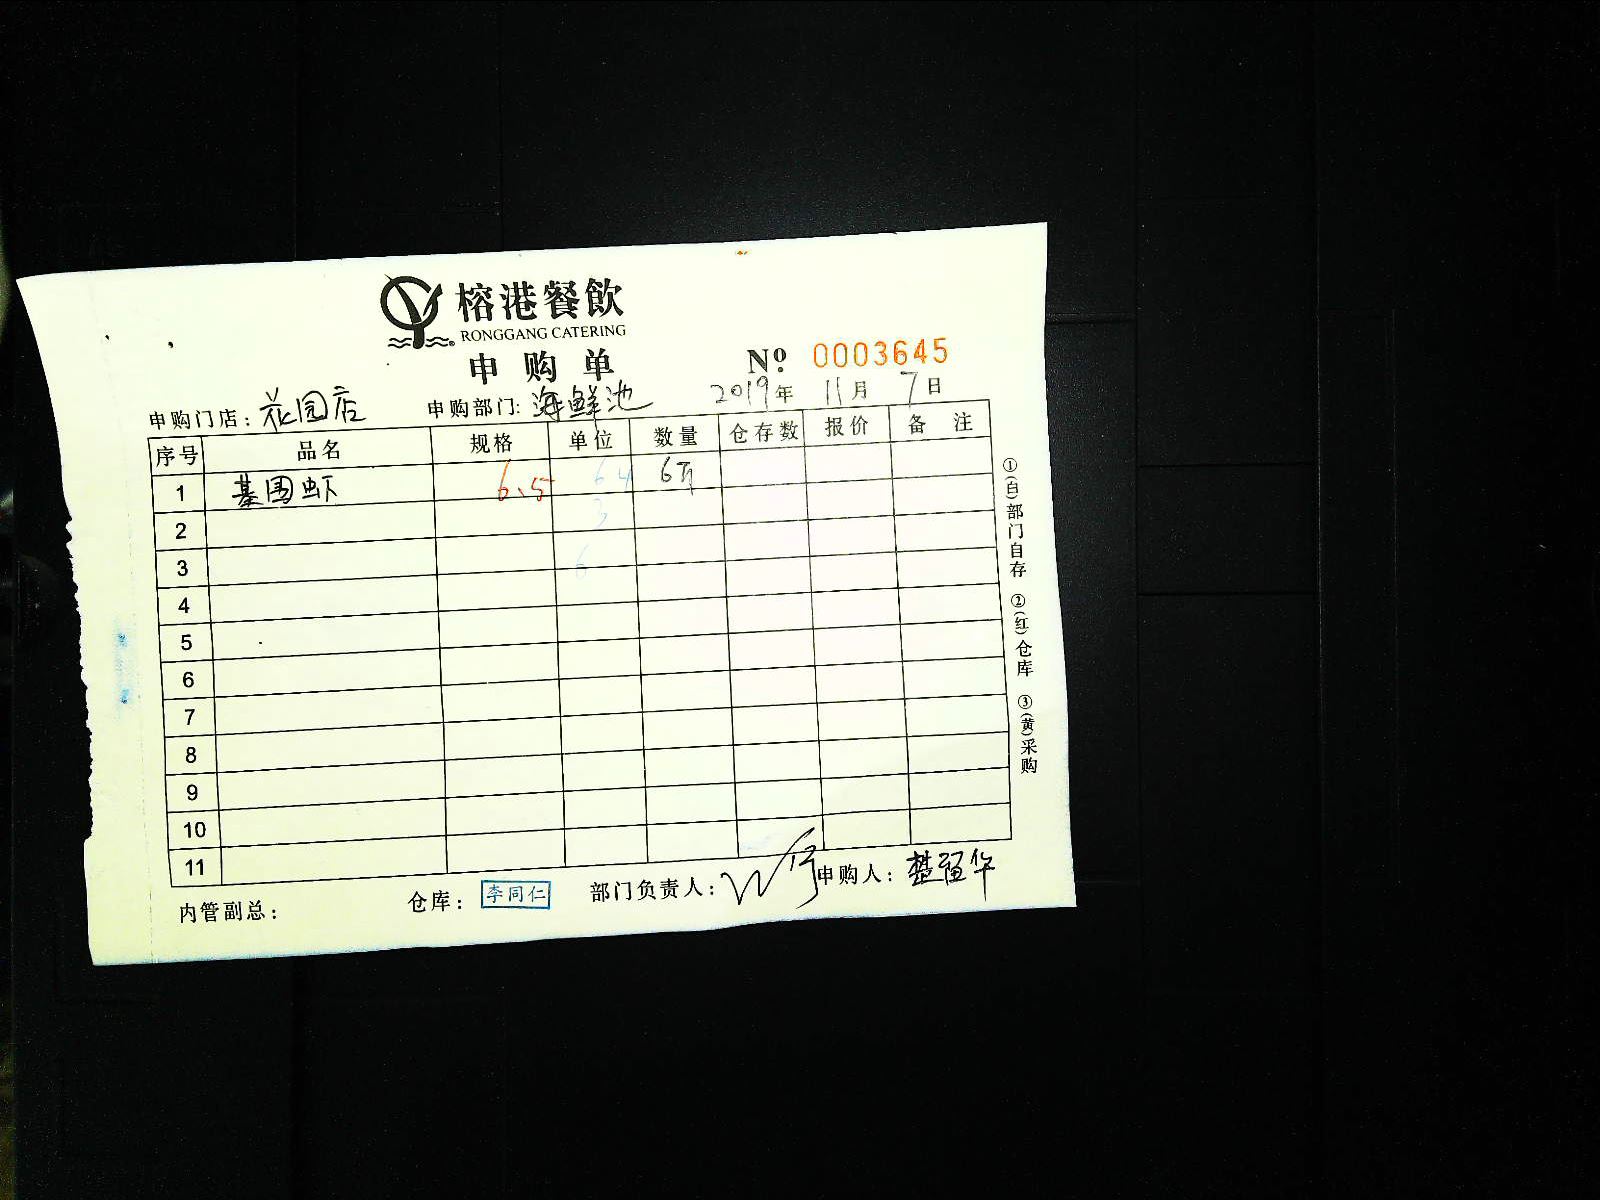 榕港餐飲
RONGGANG CATERING
申购单
Nº: 0003645
2019年 11月 7日
申购门店: 花园店 申购部门: 海鲜池
序号 品名 规格 单位 数量 仓存数 报价 备注
1 基围虾 6.5 64 6斤
2 3
3 6
4
5
6
7
8
9
10
11
①(白)部门自存 ②(红)仓库 ③(黄)采购
内管副总: 仓库: 李同仁 部门负责人: 申购人: 楚留华